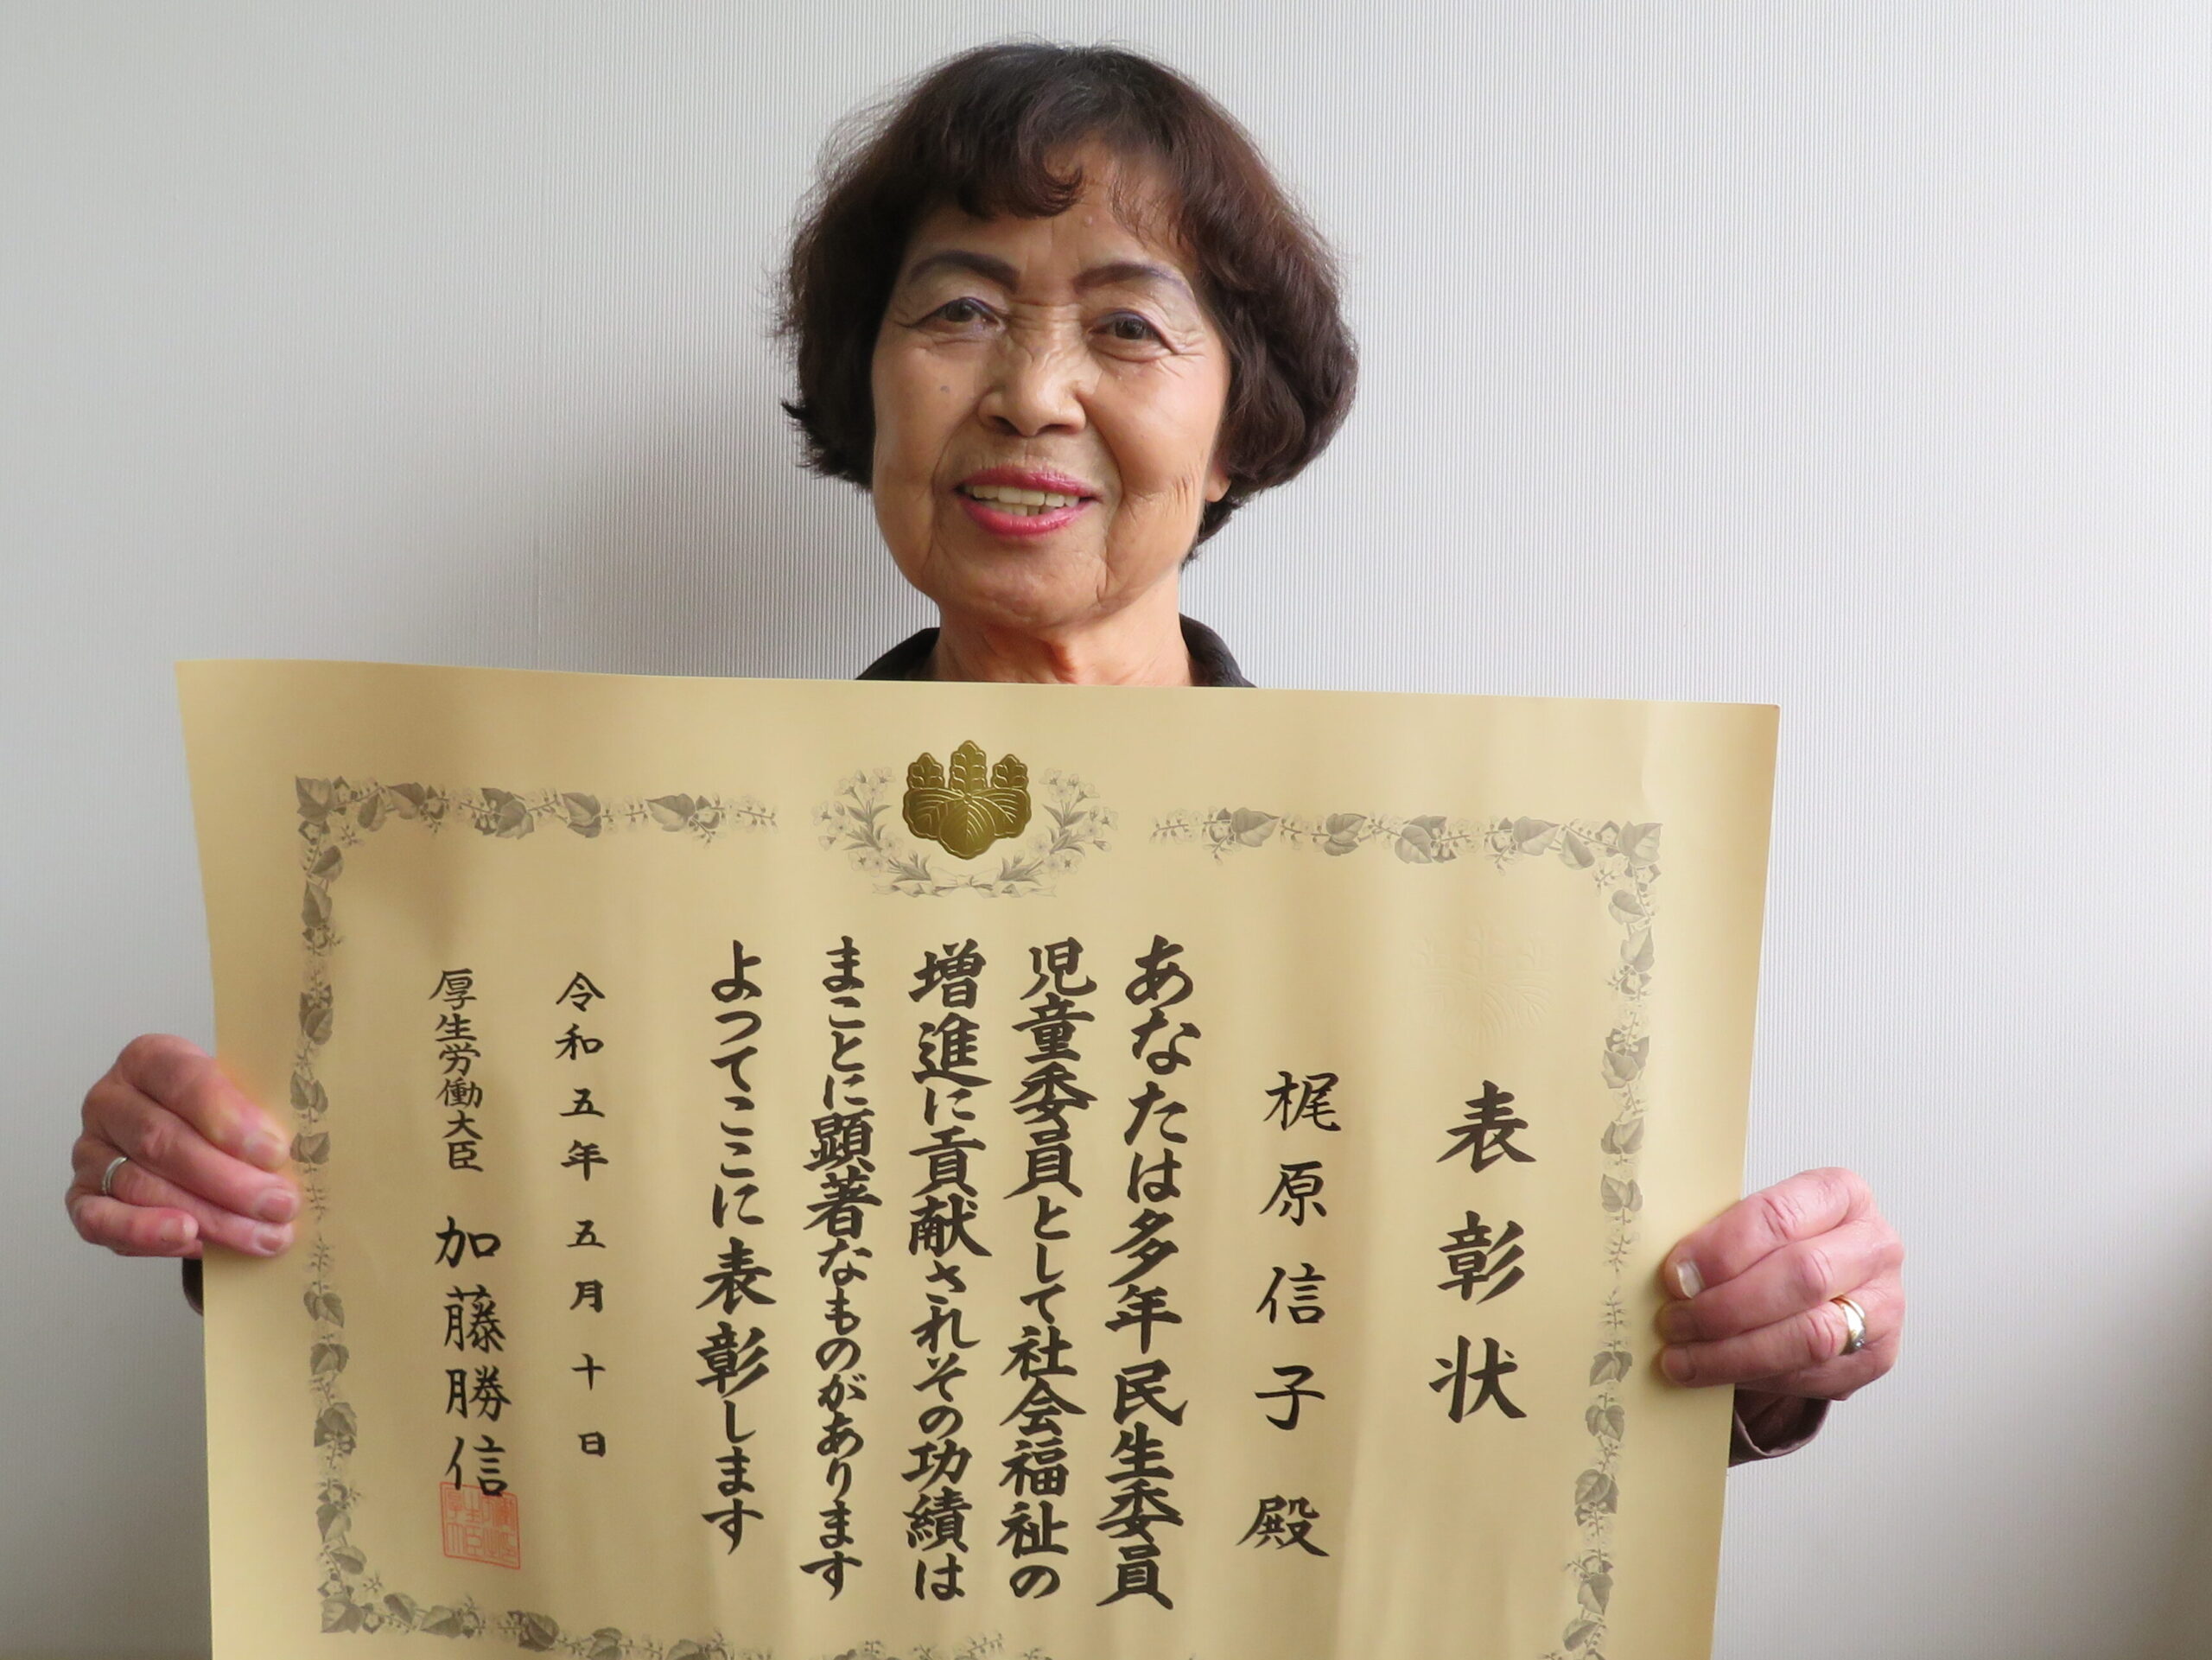 表彰状
梶原信子殿
あなたは多年民生委員
児童委員として社会福祉の
増進に貢献されその功績は
まことに顕著なものがあります
よってここに表彰します
令和五年五月十日
厚生労働大臣 加藤勝信